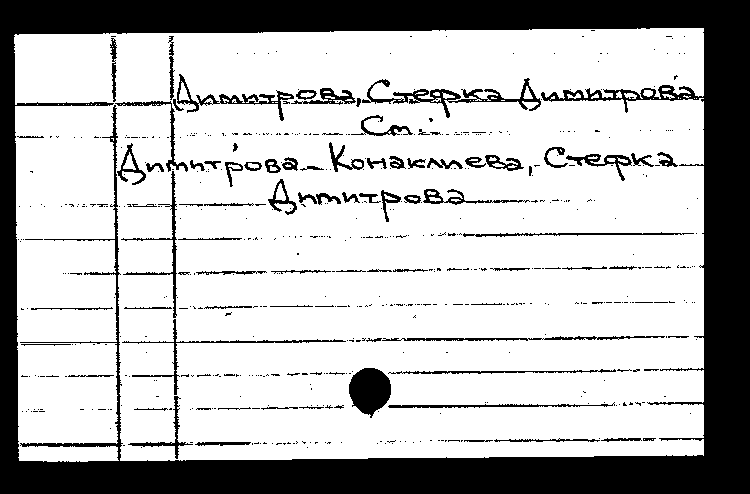 Димитрова, Стефка Димитрова
См.:
Димитрова-Конаклиева, Стефка
Димитрова